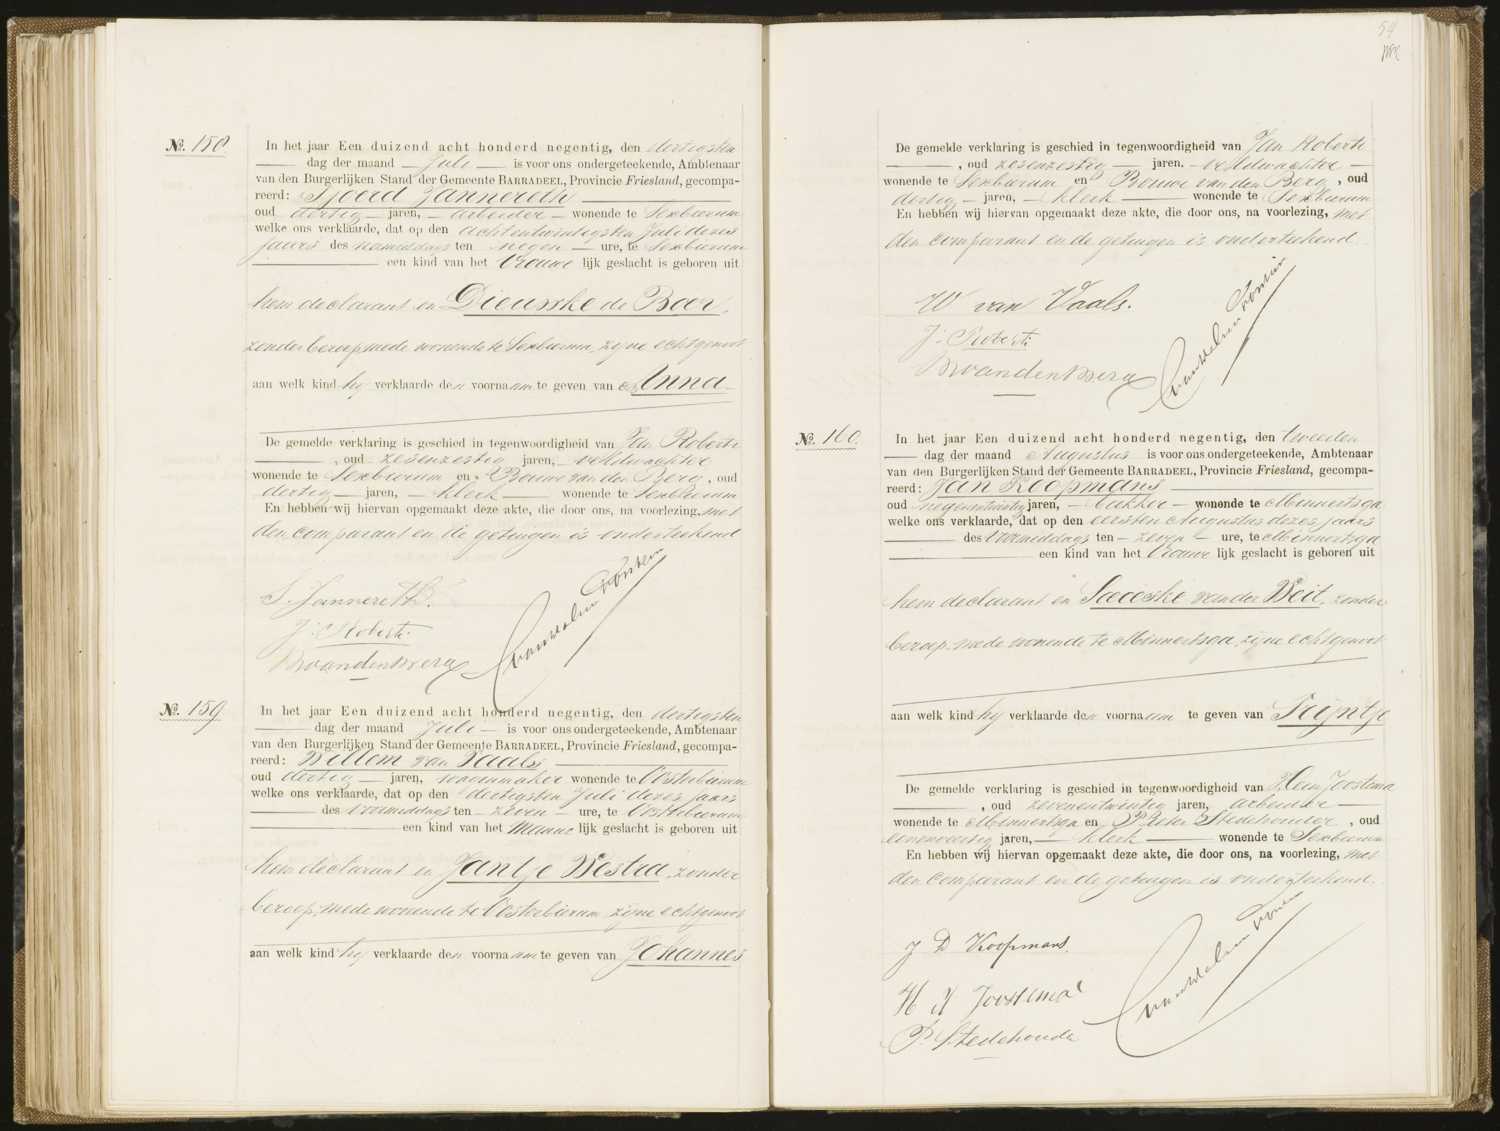 No. 158.
In het jaar Een duizend acht honderd negentig, den dertigsten
dag der maand Juli is voor ons ondergeteekende, Ambtenaar
van den Burgerlijken Stand der Gemeente BARRADEEL, Provincie Friesland, gecompa-
reerd: Sjoerd Jannereth
oud dertig jaren, arbeider wonende te Sexbierum
welke ons verklaarde, dat op den achtentwintigsten Juli dezes
jaars des namiddags ten negen ure, te Sexbierum
een kind van het Vrouwelijk geslacht is geboren uit
hem declarant en Dieuwke de Boer,
zonder beroep mede wonende te Sexbierum, zijne echtgenoot
aan welk kind hij verklaarde den voornaam te geven van Anna
De gemelde verklaring is geschied in tegenwoordigheid van Jan Roberti
, oud zesenzestig jaren, veldwachter
wonende te Sexbierum en Brouwe van den Berg, oud
dertig jaren, klerk wonende te Sexbierum
En hebben wij hiervan opgemaakt deze akte, die door ons, na voorlezing, met
den comparant en de getuigen is onderteekend
S. Jannereth.
J. Roberti.
B van den Berg
No. 159
In het jaar Een duizend acht honderd negentig, den dertigsten
dag der maand Juli is voor ons ondergeteekende, Ambtenaar
van den Burgerlijken Stand der Gemeente BARRADEEL, Provincie Friesland, gecompa-
reerd: Willem van Vaals
oud dertig jaren, wagenmaker wonende te Oosterbierum
welke ons verklaarde, dat op den dertigsten Juli dezes jaars
des voormiddags ten zeven ure, te Oosterbierum
een kind van het Mannelijk geslacht is geboren uit
hem declarant en Jantje Westra, zonder
beroep, mede wonende te Oosterbierum, zijne echtgenoot
aan welk kind hij verklaarde den voornaam te geven van Johannes
54
De gemelde verklaring is geschied in tegenwoordigheid van Jan Roberti
, oud zesenzestig jaren, veldwachter
wonende te Sexbierum en Brouwe van den Berg, oud
dertig jaren, klerk wonende te Sexbierum
En hebben wij hiervan opgemaakt deze akte, die door ons, na voorlezing, met
den comparant en de getuigen is onderteekend
W van Vaals.
J. Roberti
B van den Berg
No. 160.
In het jaar Een duizend acht honderd negentig, den tweeden
dag der maand Augustus is voor ons ondergeteekende, Ambtenaar
van den Burgerlijken Stand der Gemeente BARRADEEL, Provincie Friesland, gecompa-
reerd: Jan Koopmans
oud negenentwintig jaren, bakker wonende te Minnertsga
welke ons verklaarde, dat op den eersten Augustus dezes jaars
des Voormiddags ten zeven ure, te Minnertsga
een kind van het Vrouwelijk geslacht is geboren uit
hem declarant en Saakske van der Weit, zonder
beroep, mede wonende te Minnertsga, zijne echtgenoot
aan welk kind hij verklaarde den voornaam te geven van Trijntje
De gemelde verklaring is geschied in tegenwoordigheid van Hein Joostema
, oud zevenentwintig jaren, arbeider
wonende te Minnertsga en Pieter Stedehouder, oud
eenenveertig jaren, klerk wonende te Sexbierum
En hebben wij hiervan opgemaakt deze akte, die door ons, na voorlezing, met
den comparant en de getuigen is onderteekend
J D Koopmans
H J Joostema
P. Stedehouder